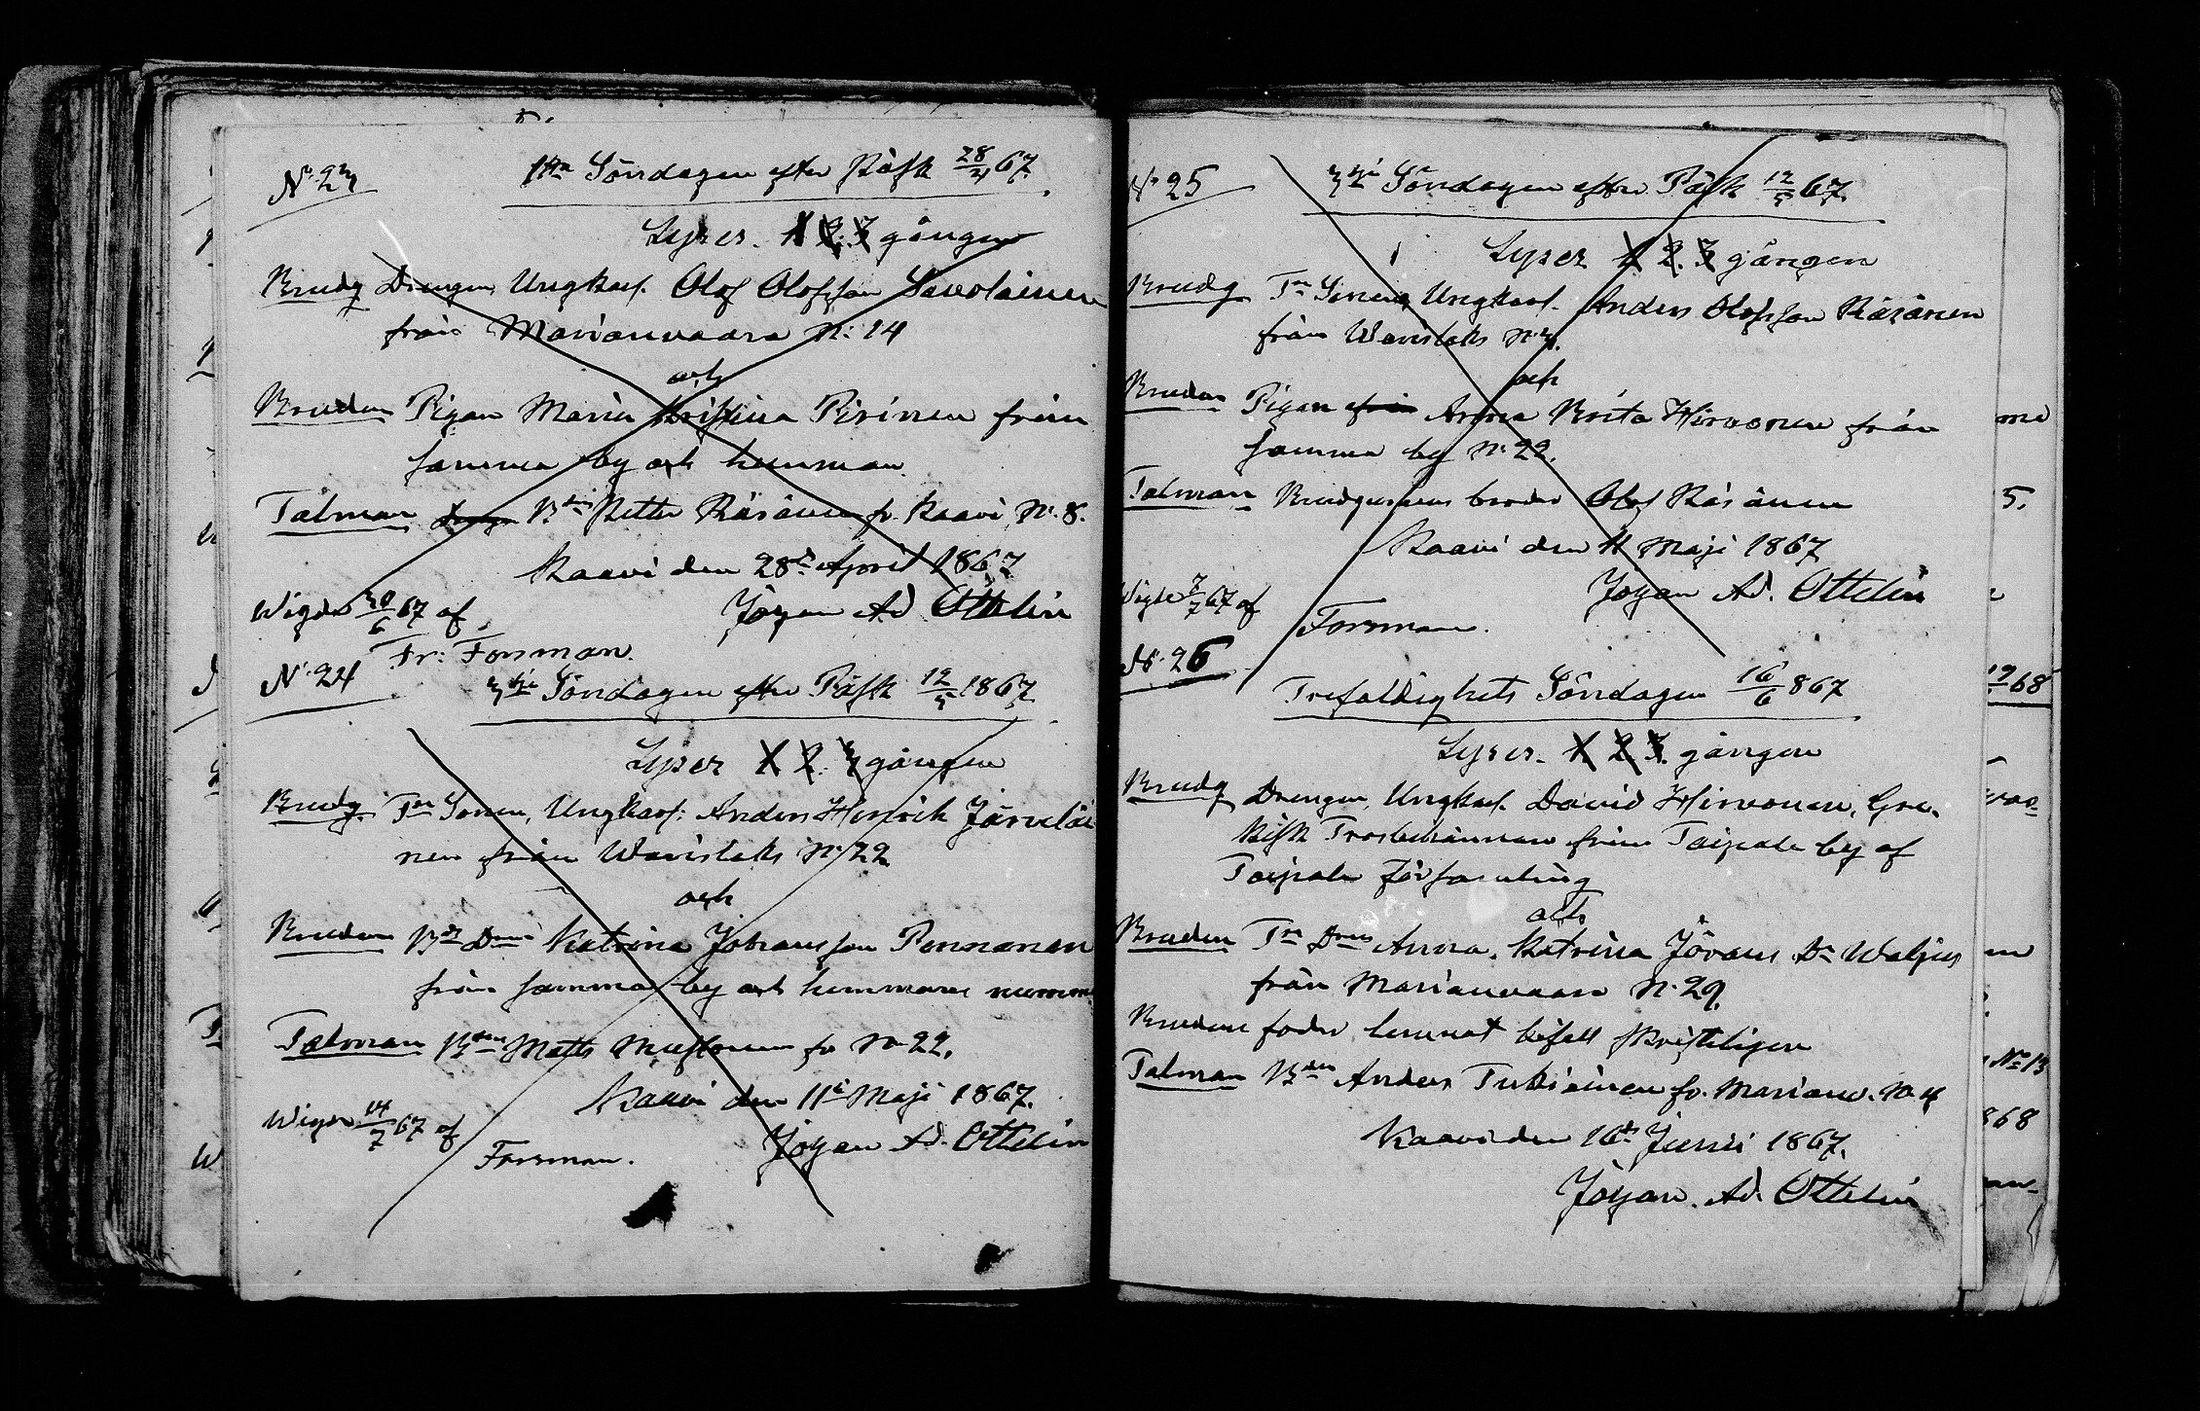 N: 23
1sta Söndagen efter Påsk 28/4 67.
Lyses. 1 2. 3 gången
Brudg Drengen Ungkarl. Olof Olofsson Savolainen
från Marianvaara N: 14
och
Bruden Pigan Maria Kristina Pirinen från
samma by och hemman.
Talman Bdn Petter Räsänen fr. Kaavi, No. 8.
Kaavi den 28de April 1867
Vigde 30/6 67 af
Johan Ad. Ottelin
Fr: Forsman.
N. 24
3dje Söndagen efter Påsk 12/5 1867.
Lyser 1 2. 3 gången
Brudg. Tn Sonen, Ungkarl: Anders Henrik Järveläi
nen från Warislaks No 22
och
Bruden Bds Dren Katrina Johansson Pennanen
från samma by och hemmans numm
Talman Bden Matts Mustonen fr No 22.
Kaavi den 11te Maji 1867.
Vigde 14/7 67 af
Johan Ad. Ottelin
Forsman.
N. 25
3dje Söndagen efter Påsk 12/5 67.
Lyser 1 2. 3 gången
Brudg Tn Sonen, Ungkarl. Anders Olofsson Räsänen
från Warislaks No 4.
och
Bruden Pigan från Anna Brita Hirvonen från
samma by No 22.
Talman Brudgummens broder Olof Räsänen
Kaavi den 11 Maji 1867
Johan Ad. Ottelin
Vigde 7/7 67 af
Forsman.
N. 26
Trefaldighets Söndagen 16/6 867
Lyses. 1. 2 3. gången
Brudg Drengen, Ungkarl. David Hirvonen, Gre-
kisk Trosbekännare från Taipale by af
Taipale församling
och
Bruden Tn Dren Anna Katrina Jörans Dr Waljus
från Marianvaara No 29.
Brudens fader lemnat bifall skriftligen
Talman Bden Anders Tukiainen fr. Marianv. No 4
Kaavi den 16de Junii 1867.
Johan. Ad. Ottelin
5.
68
No 13
868